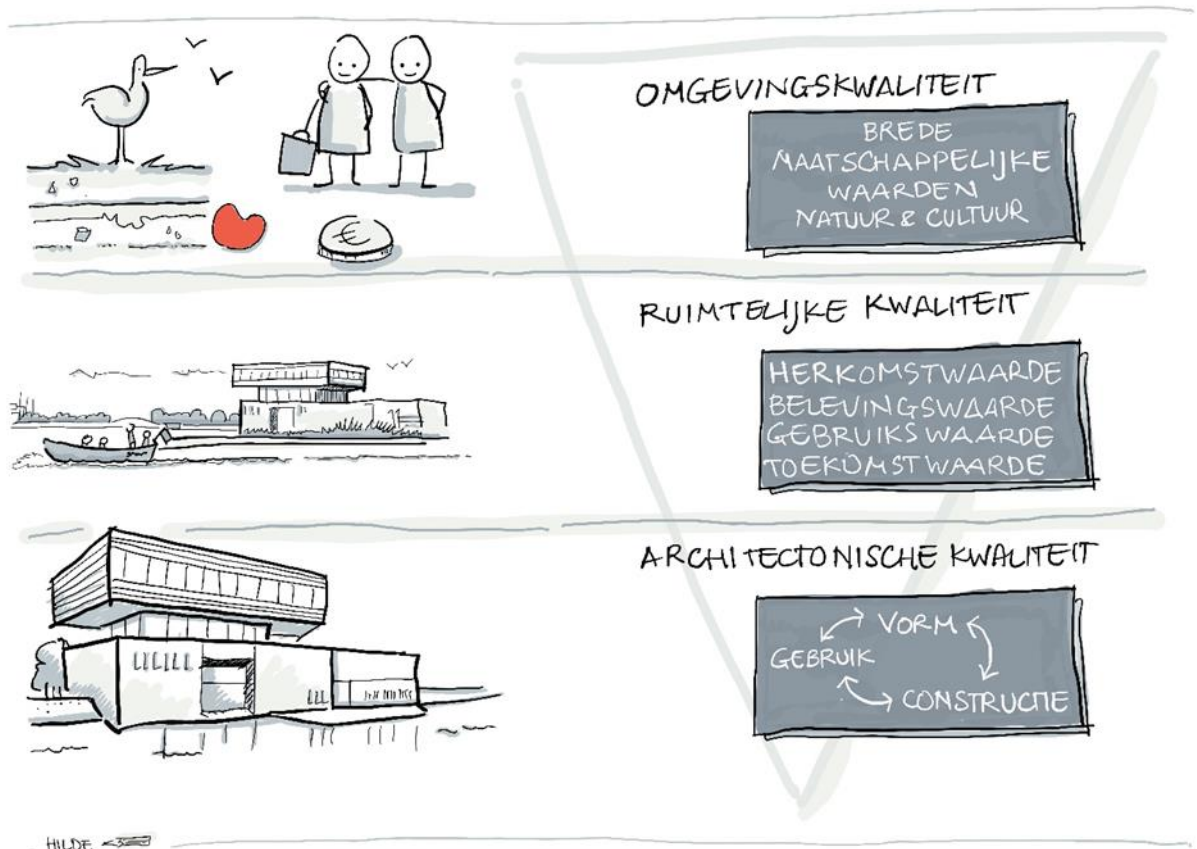 OMGEVINGSKWALITEIT
BREDE
MAATSCHAPPELIJKE
WAARDEN
NATUUR & CULTUUR
€
RUIMTELIJKE KWALITEIT
HERKOMSTWAARDE
BELEVINGSWAARDE
GEBRUIKSWAARDE
TOEKOMSTWAARDE
ARCHITECTONISCHE KWALITEIT
VORM
GEBRUIK
CONSTRUCTIE
HILDE